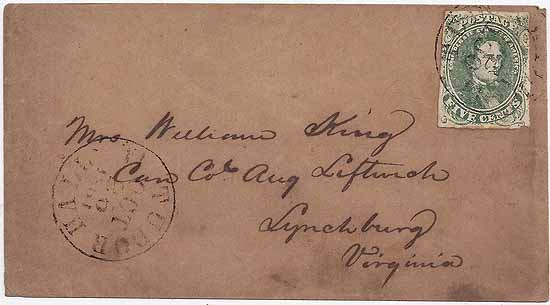 POSTAGE
CONFEDERATE STATES OF AMERICA
FIVE CENTS
Mrs William King
Care Col Aug Leftwich
Lynchburg
Virginia
TUDOR HALL